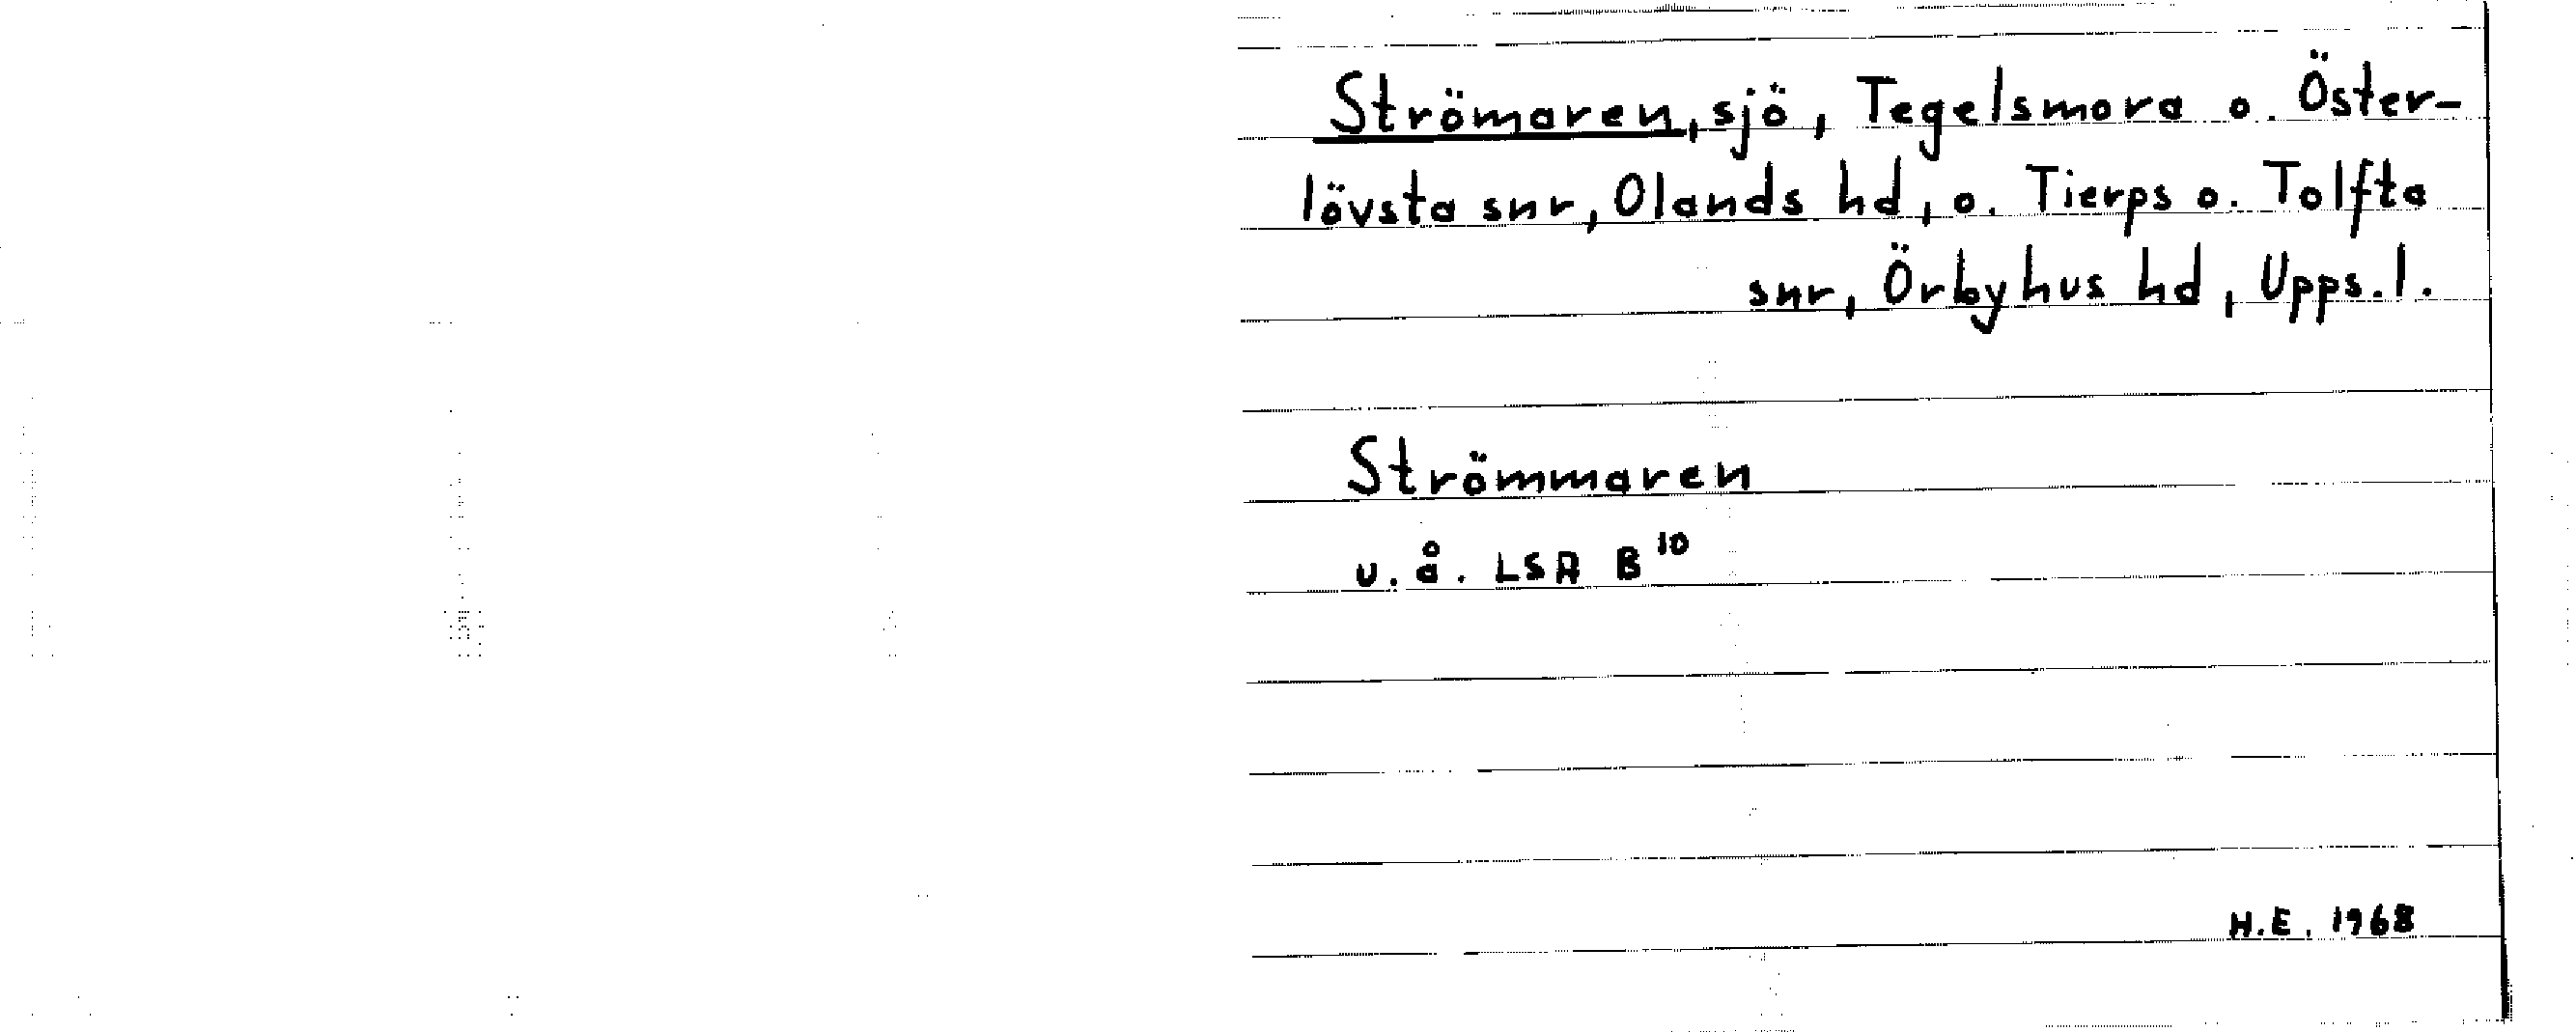 Strömaren, sjö, Tegelsmora o. Öster-
lövsta snr, Olands hd, o. Tierps o. Tolfta
snr, Örbyhus hd, Upps.l.
Strömmaren
u.å. LSA B¹⁰
H.E. 1968